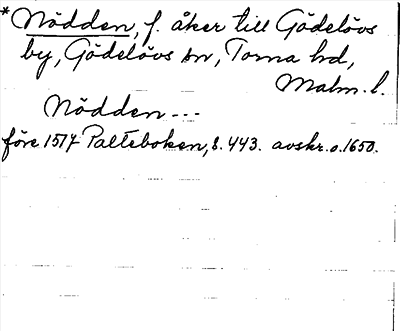 * Nödden, f. åker till Gödelövs
by, Gödelövs sn, Torna hd,
Malm. l.
Nödden ---
före 1517 Palteboken, s. 443. avskr. o. 1650.